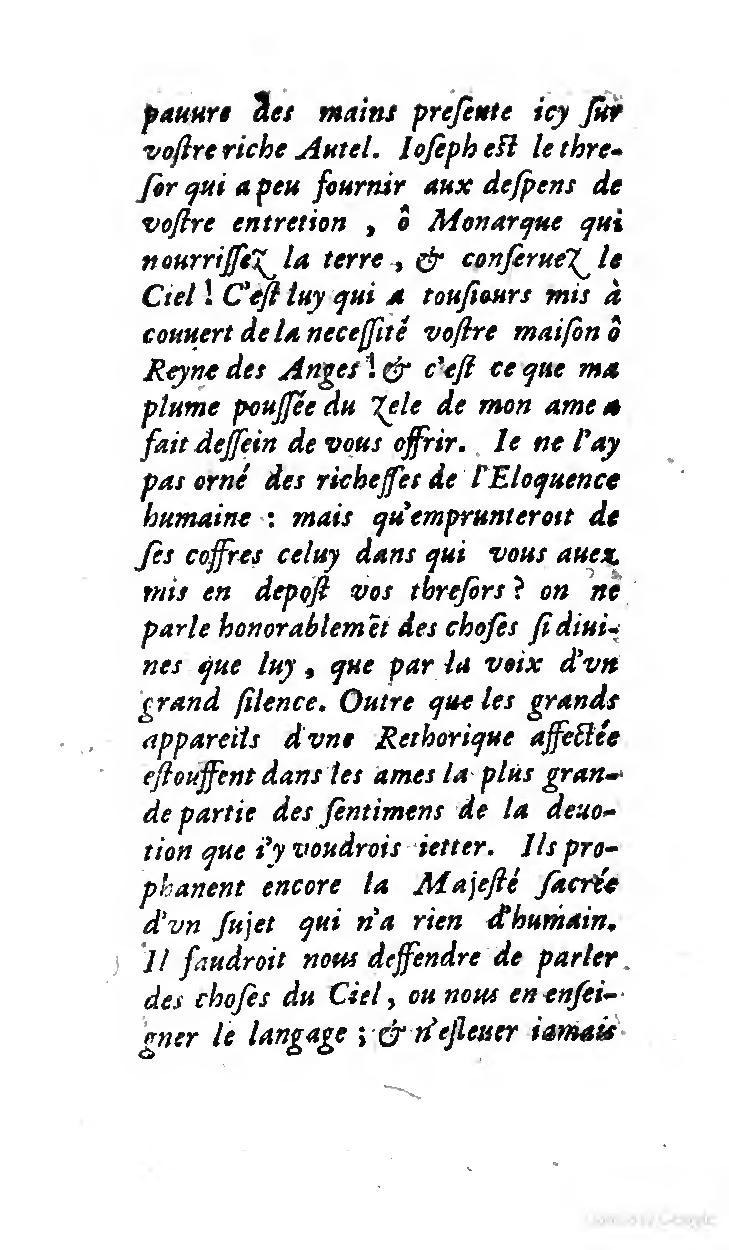 pauure des mains preſente icy ſur
voſtre riche Autel. Ioſeph eſt le thre-
ſor qui a peu fournir aux deſpens de
voſtre entretion , ô Monarque qui
nourriſſez la terre , & conſeruez le
Ciel ! C'eſt luy qui a touſiours mis à
couuert de la neceſſité voſtre maiſon ô
Reyne des Anges ! & c'eſt ce que ma
plume pouſſée du zele de mon ame a
fait deſſein de vous offrir. Ie ne l'ay
pas orné des richeſſes de l'Eloquence
humaine : mais qu'emprunteroit de
ſes coffres celuy dans qui vous auez
mis en depoſt vos threſors ? on ne
parle honorablemẽt des choſes ſi diui-
nes que luy , que par la voix d'vn
grand ſilence. Outre que les grands
appareils d'vne Rethorique affectée
eſtouffent dans les ames la plus gran-
de partie des ſentimens de la deuo-
tion que i'y voudrois ietter. Ils pro-
phanent encore la Majeſté ſacrée
d'vn ſujet qui n'a rien d'humain.
Il faudroit nous deffendre de parler
des choſes du Ciel , ou nous en enſei-
gner le langage ; & n'eſleuer iamais